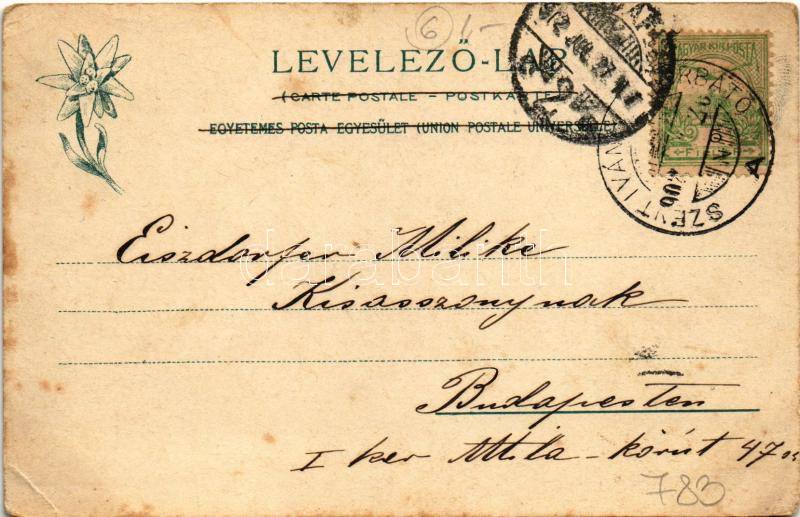 6 1-
LEVELEZŐ-LAP
(CARTE POSTALE - POSTKARTE)
EGYETEMES POSTA EGYESÜLET (UNION POSTALE UNIVERSELLE)
MAGYAR KIR. POSTA
SZENT IVÁN
A
Eiszdorfer Milike
Kisasszonynak
darabanth
Budapesten
I ker Attila-körút 47
783